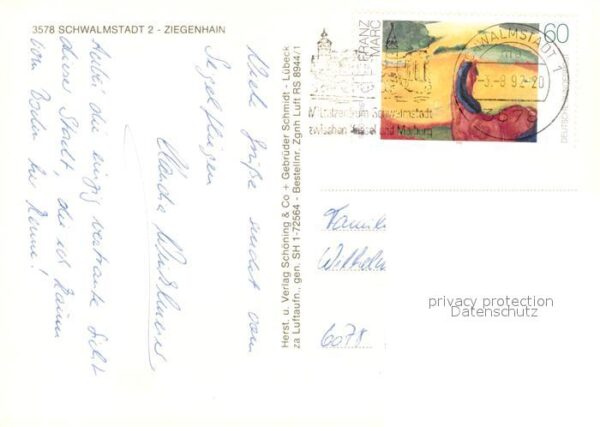 3578 SCHWALMSTADT 2 - ZIEGENHAIN
Viele Grüße sendet vom
Segelfliegen
Claudia
Anbei die einzig vertraute Sicht
dieser Stadt, die ich kaum
vom Boden her kenne!
Herst. u. Verlag Schöning & Co + Gebrüder Schmidt - Lübeck
za Luftaufn., gen. SH 1-72564 - Bestellnr. Zgnh Luft RS 8944/1
FRANZ
MARC
60
DEUTSCHE BUNDESPOST
SCHWALMSTADT 1
-3.-8.92-20
Mittelzentrum Schwalmstadt
zwischen Kassel und Marburg
Familie
Wilhelm
6078
privacy protection
Datenschutz